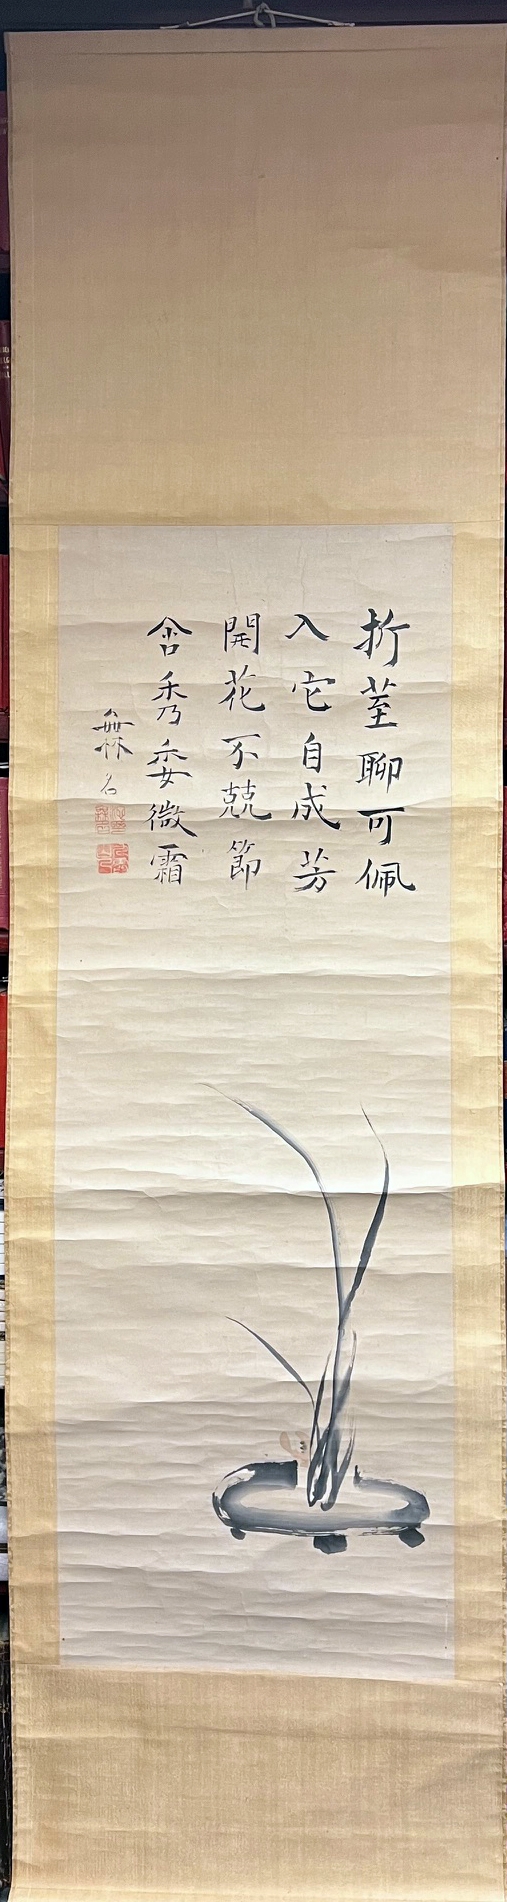 折莖聊可佩
入它自成芳
開花不兢節
含秀委微霜
無名